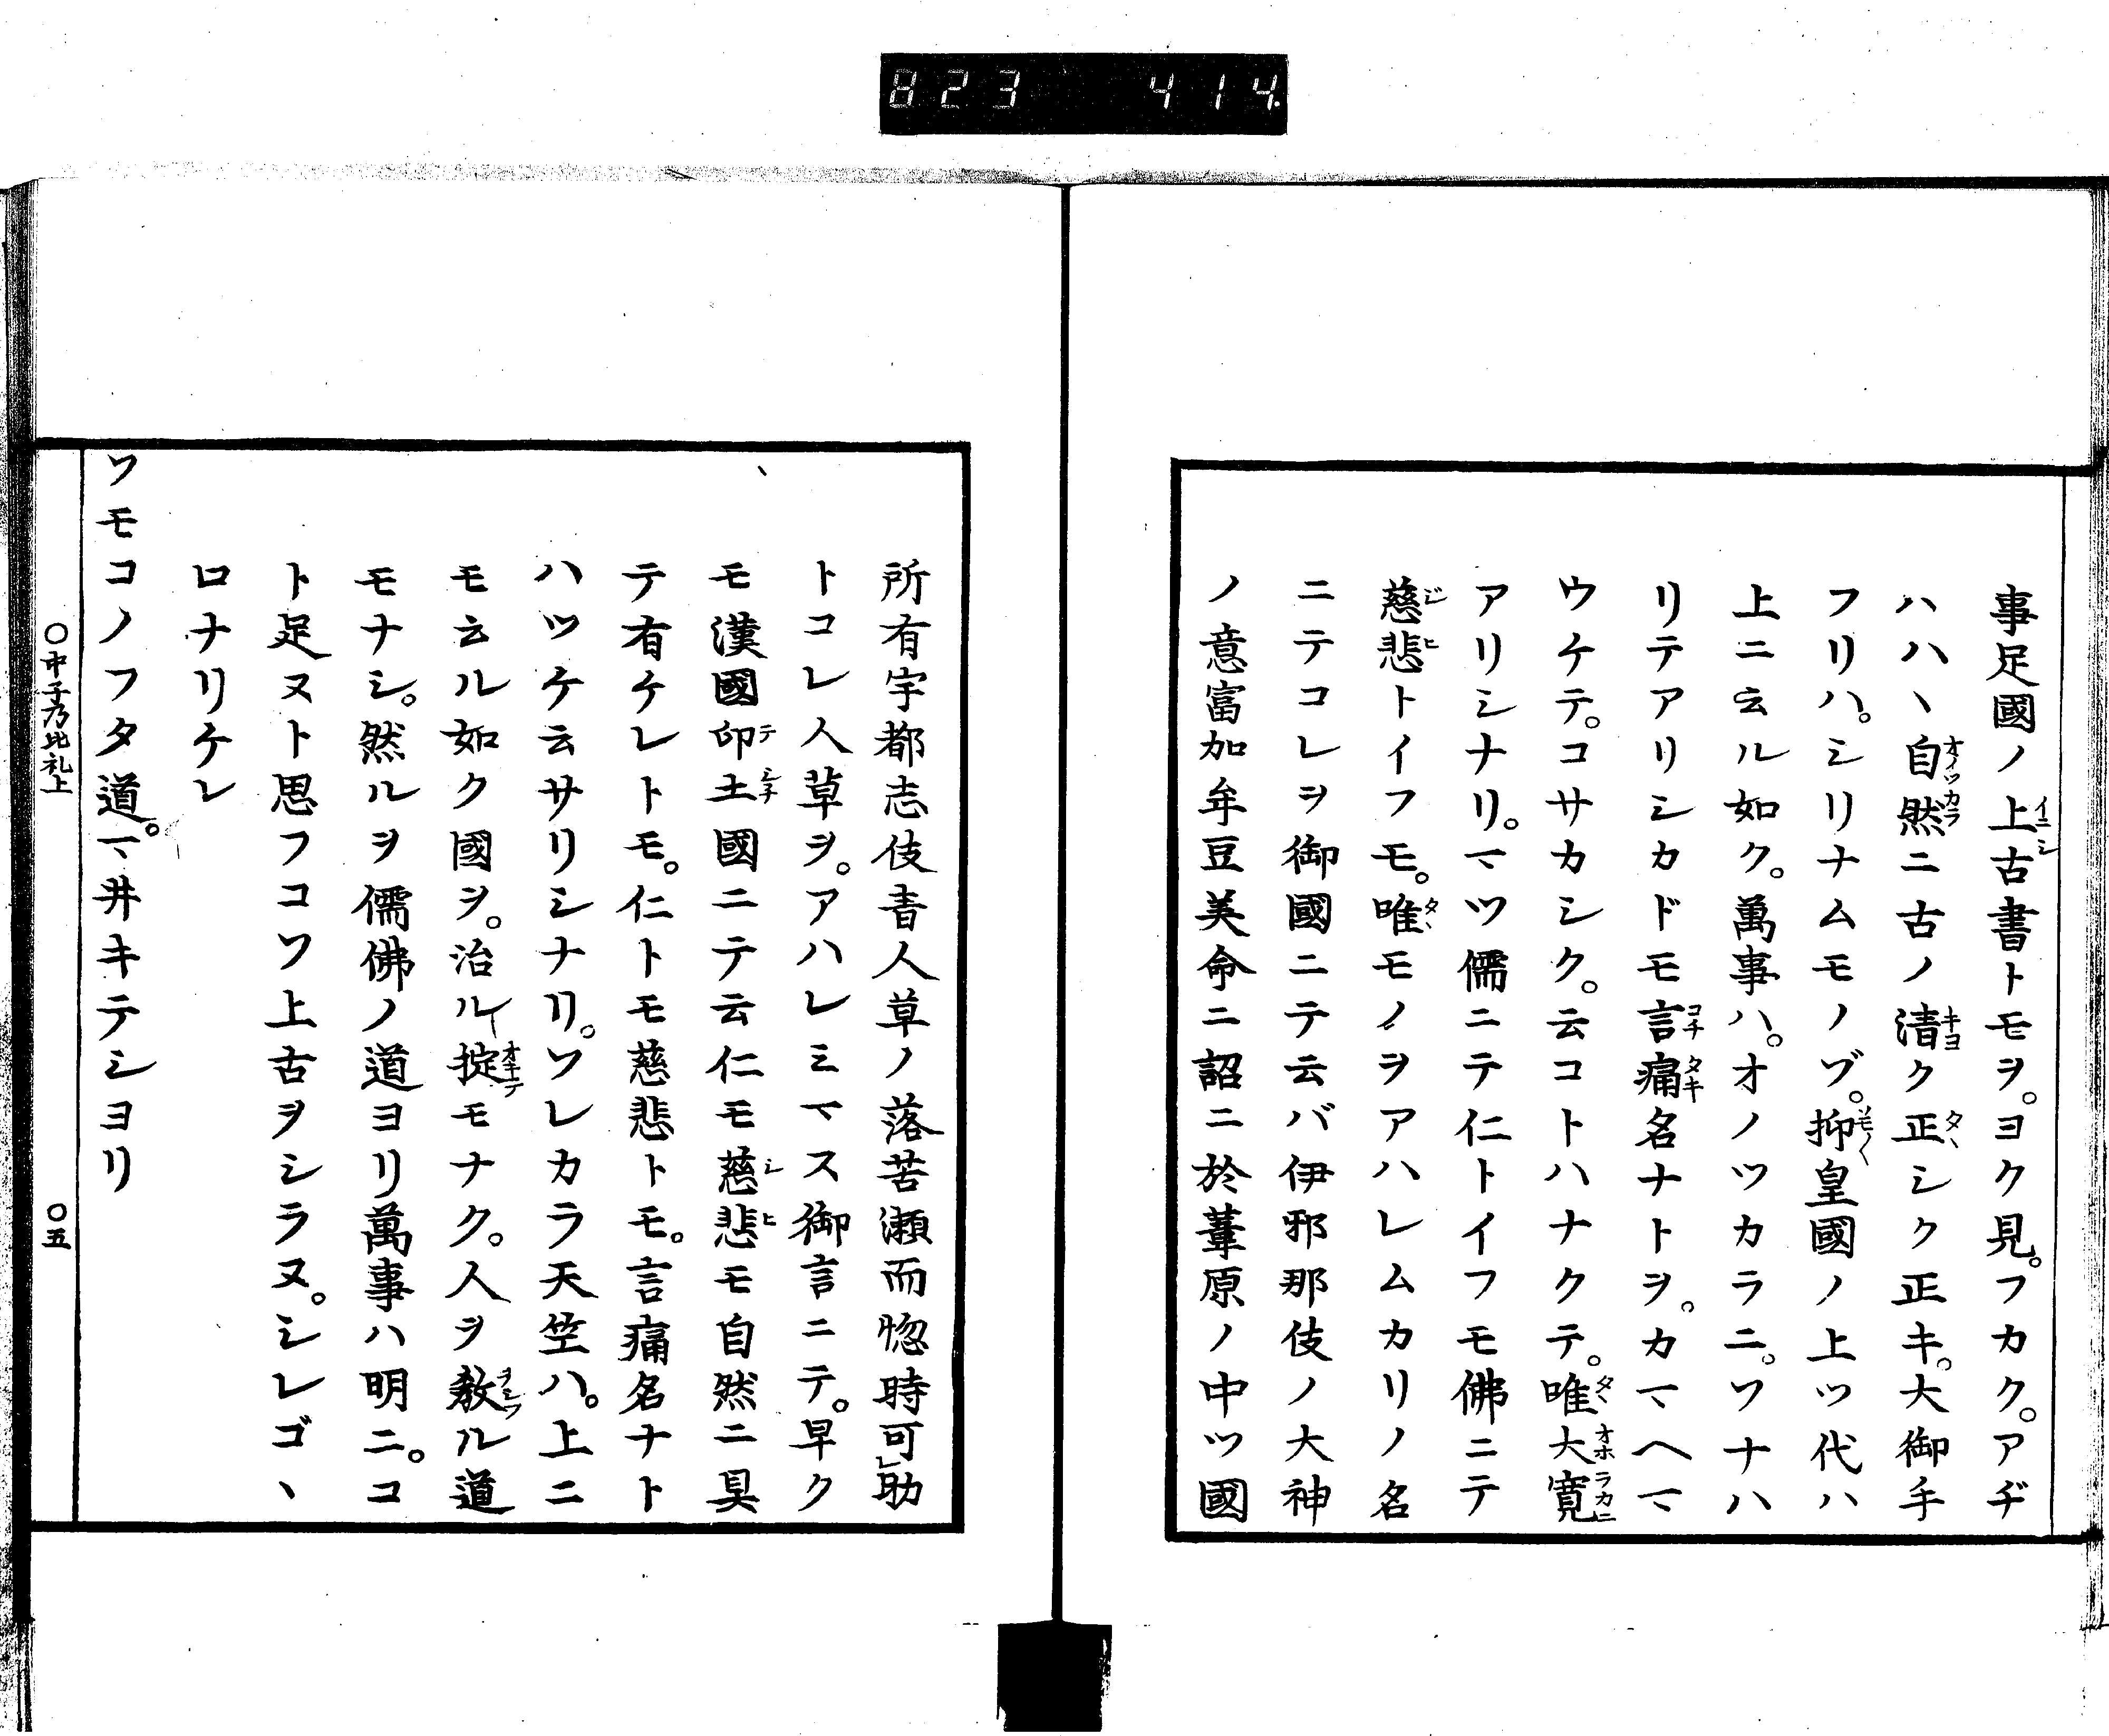 823 414.
事足國ノ上古書トモヲ。ヨク見。フカク。アヂ
ハハヽ自然ニ古ノ清ク正シク正キ。大御手
フリハ。シリナムモノゾ。抑皇國ノ上ツ代ハ
上ニ云ル如ク。萬事ハ。オノツカラニ。ソナハ
リテアリシカドモ言痛名ナトヲ。カマヘマ
ウケテ。コサカシク。云コトハナクテ。唯大寛
アリシナリ。マツ儒ニテ仁トイフモ佛ニテ
慈悲トイフモ。唯モノヲアハレムカリノ名
ニテコレヲ御國ニテ云バ伊邪那伎ノ大神
ノ意富加牟豆美命ニ詔ニ於葦原ノ中ツ國
所有宇都志伎青人草ノ落苦瀬而惚時可助
トコレ人草ヲ。アハレミマス御言ニテ。早ク
モ漢國印土國ニテ云仁モ慈悲モ自然ニ具
テ有ケレトモ。仁トモ慈悲トモ。言痛名ナト
ハツケ云サリシナリ。ソレカラ天竺ハ。上ニ
モ云ル如ク國ヲ。治ル掟モナク。人ヲ教ル道
モナシ。然ルヲ儒佛ノ道ヨリ萬事ハ明ニ。コ
ト足ヌト思フコソ上古ヲシラヌ。シレゴヽ
ロナリケレ
ソモコノフタ道。マ井キテシヨリ
〇中子乃比礼上 〇五